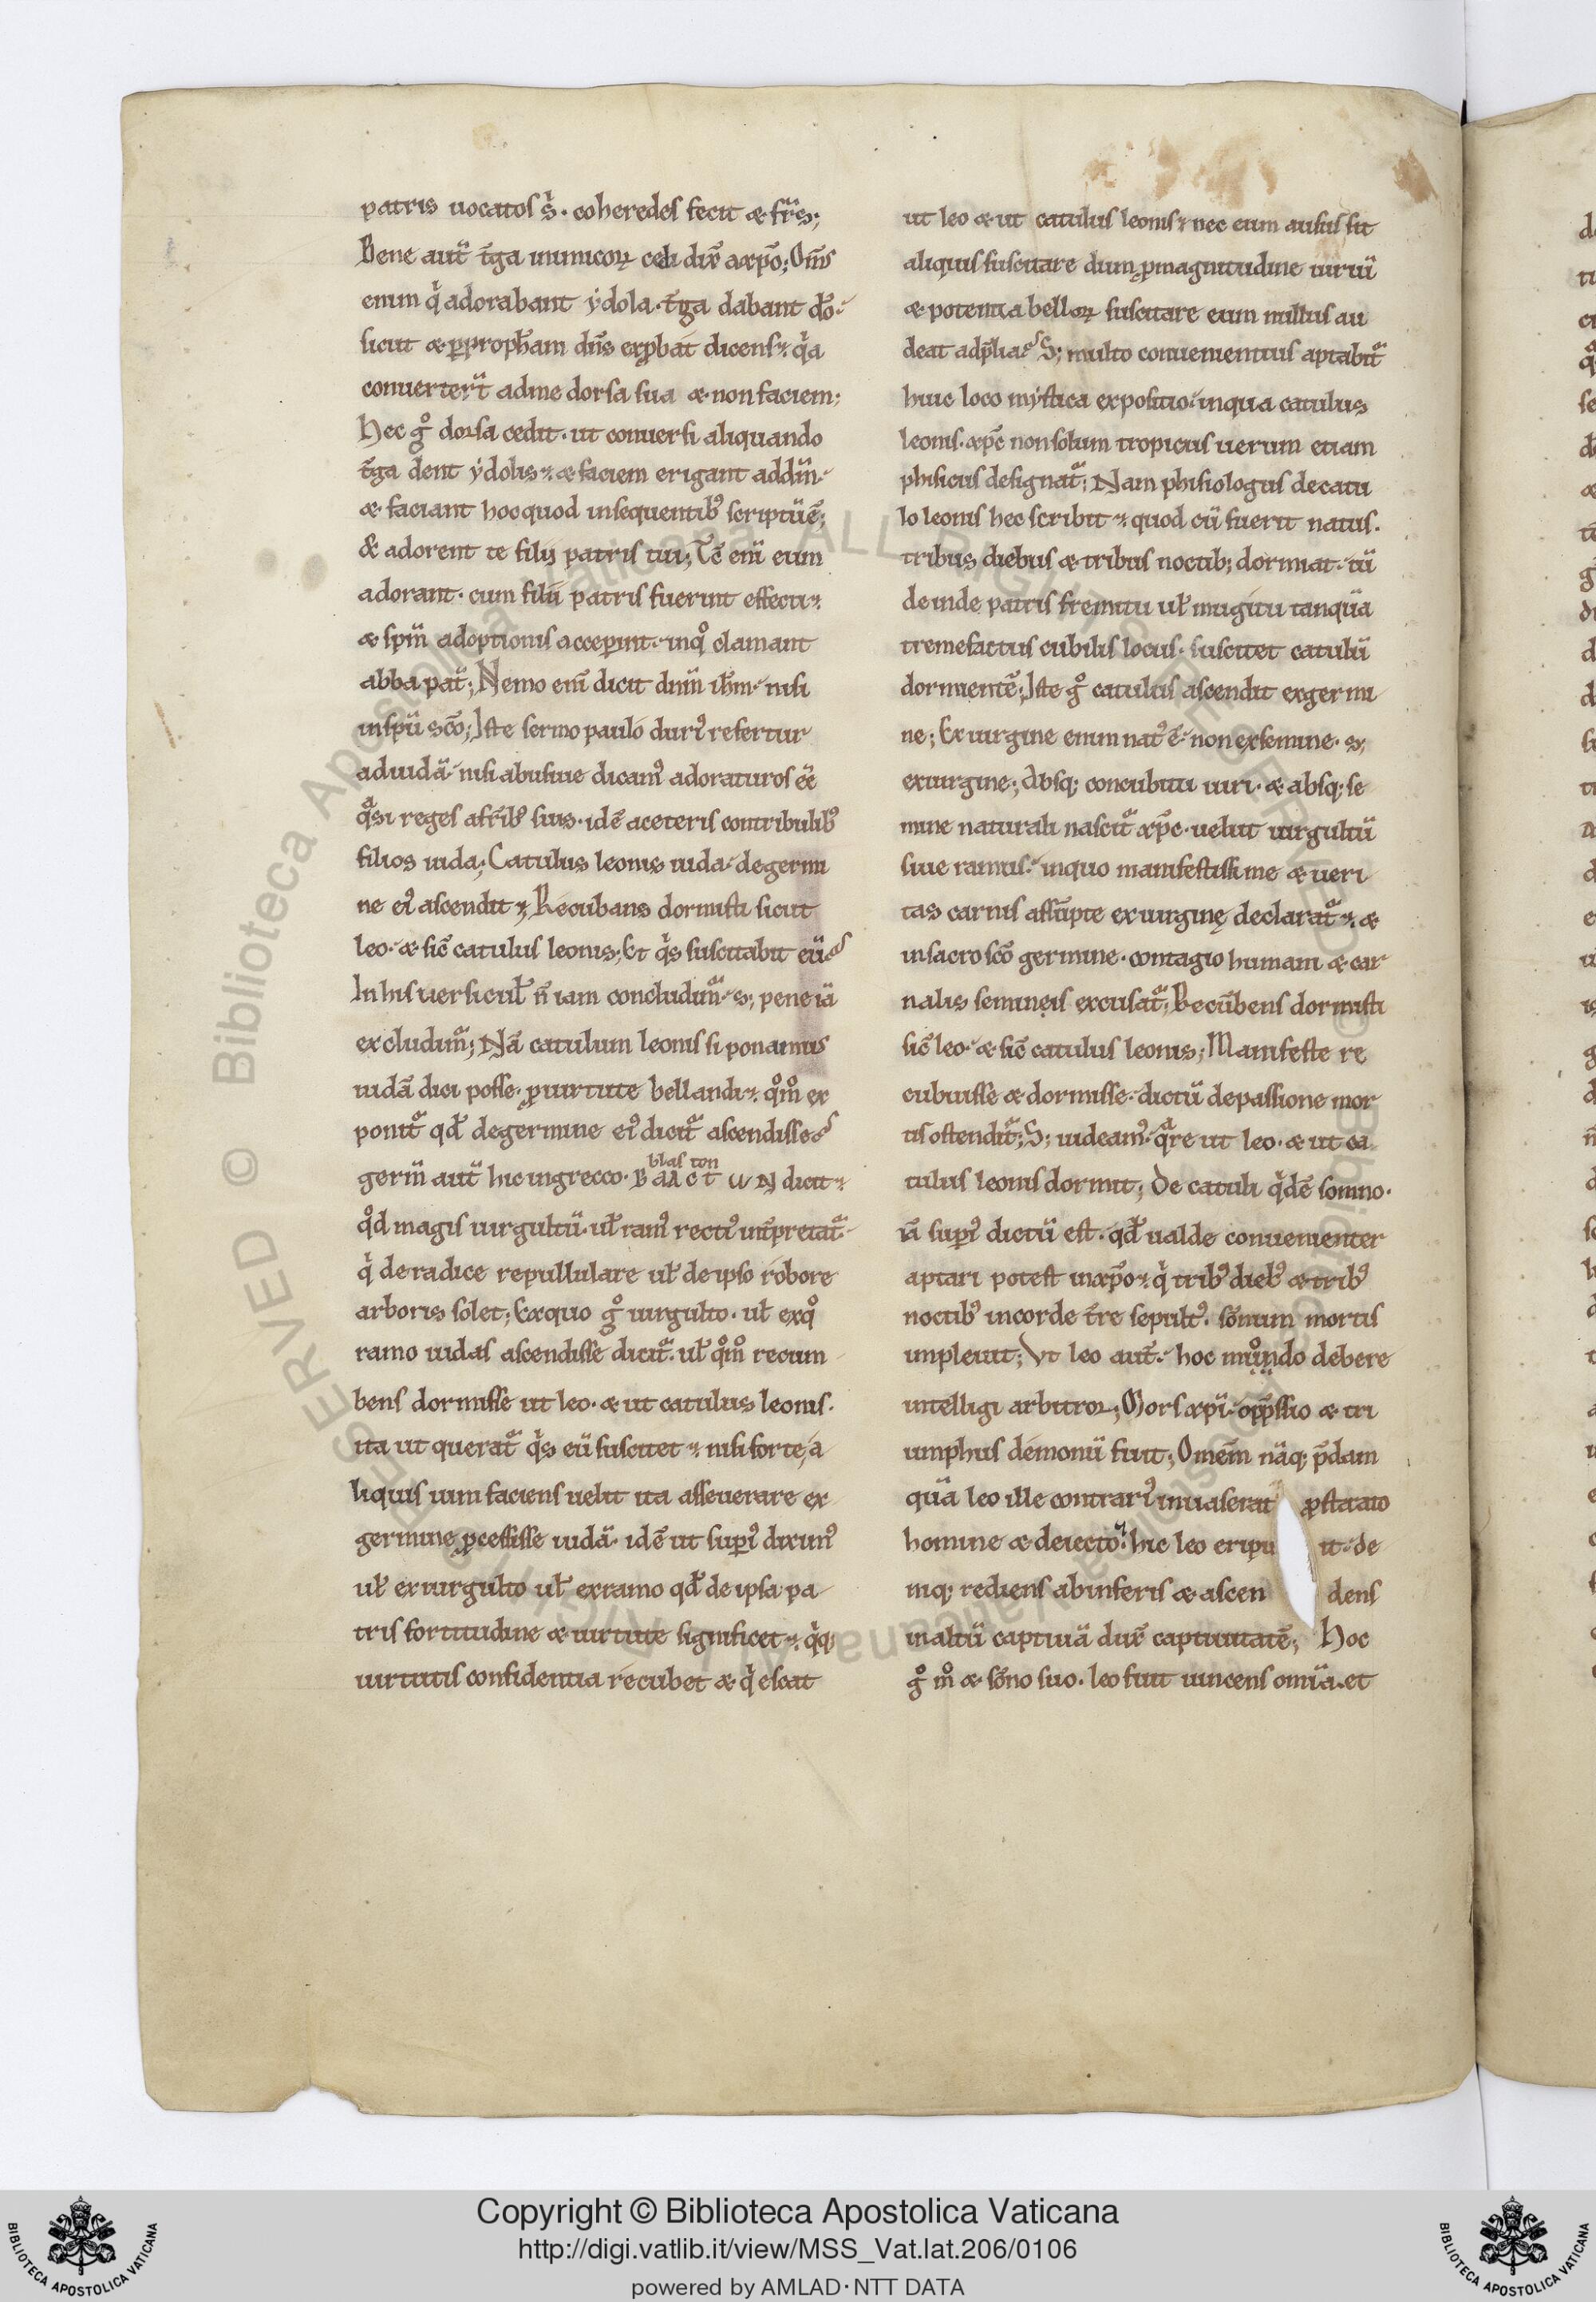 patris uocatos s̓. coheredes fecit & fr̄s;
Bene aut̄ t̄ga inimicoꝝ cedi dix̄ a xp̄o; Om̄s
enim q̓ adorabant ẏdola. t̄ga dabant dō.
sicut & ꝑ propham̄ dn̄s exp̱bat dicens. q̓a
conuerter̄t ad me dorsa sua & non faciem;
Hec g̊ dorsa cedit. ut conuersi aliquando
t̄ga dent ẏdolis. & faciem erigant ad dn̄m.
& faciant hoc quod in sequentib; scriptū ē;
& adorent te filij patris tui; Tc̄ enī eum
adorant. cum filii patris fuerint effecti.
& spm̄ adoptionis acceꝑint. in q̊ clamant
abba pat̄; Nemo enī dicit dnm̄ ihm̄. nisi
in spū scō; Iste sermo paulo duri᾽ refertur
ad iudā. nisi abusiue dicam᾽ adoraturos eē
q̓si reges a fr̄ib᾽ suis. idē a ceteris contribulib᾽
filios iuda; Catulus leonis iuda. de germi
ne ei᾽ ascendit; Recubans dormisti sicut
leo. & sic̄ catulus leonis; Et q̓s suscitabit eū
In his uersicul̄ n̄ iam concludim̃. s; pene iā
excludim̃; Nā catulum leonis si ponamus
iudā dici posse. ꝓ uirtute bellandi. q̊m̊ ex
ponit̃ qd̄ de germine ei᾽ dicit̃ ascendisse
germ̄ aut̄ hic in grecco. blaston ΒΛΑCΤωΝ dicit
q̊d magis uirgultū. ul̄ ram᾽ recti᾽ int̄pretat̃.
q̓ de radice repullulare ul̄ de ipso robore
arboris solet; Ex quo g̊ uirgulto. ul̄ ex q̊
ramo iudas ascendisse dicit̃. ul̄ q̊m̊ recum
bens dormisse ut leo. & ut catulus leonis.
ita ut querat̃ q̓s eū suscitet. nisi forte a
liquis uim faciens uelit ita asseuerare ex
germine ꝓcessisse iudā. idē ut suꝑi᾽ dixim᾽
ul̄ ex uirgulto ul̄ ex ramo qd̄ de ipsa pa
tris fortitudine & uirtute significet. q̓q;
uirtutis confidentia recubet & q̓escat
ut leo & ut catulus leonis. nec eum ausus sit
aliquis suscitare dum ꝓ magnitudine uiriū
& potentia belloꝝ suscitare eum nullus au
deat ad p̄lia S; multo conuenientius aptabit̃
huic loco mẏstica expositio. in qua catulus
leonis. xp̄c non solum tropicus uerum etiam
phisicus designat̃; Nam phisiologus de catu
lo leonis hec scribit. quod cū fuerit natus.
tribus diebus & tribus noctib; dormiat. tū
deinde patris fremitu ul̄ mugitu tanquā
tremefactus cubilis locus. suscitet catulū
dormientē; Iste g̊ catulus ascendit ex germi
ne; Ex uirgine enim nat᾽ ē. non ex semine. s;
ex uirgine; Absq; concubitu uiri. & absq; se
mine naturali nascit̃ xp̄c. uelut uirgultū
siue ramus. in quo manifestissime & ueri
tas carnis assūpte ex uirginę declarat̃. &
in sacro scō germine. contagio humani & car
nalis semineis excusat̃; Recūbens dormisti
sic̄ leo. & sic̄ catulus leonis; Manifeste re
cubuisse & dormisse. dictū de passione mor
tis ostendit̃; S; uideam᾽. q̓re ut leo. & ut ca
tulus leonis dormit; De catuli q̓dē somno.
iā suꝑi᾽ dictū est. qd̄ ualde conuenienter
aptari potest in xp̄o. q̓ trib᾽ dieb᾽ & trib᾽
noctib᾽ in corde t̄re sepult᾽. sōnum mortis
impleuit; Vt leo aut̄. hoc mundo debere
intelligi arbitror; Mors xp̄i. opp̄ssio & tri
umphus demonū fuit; Omnem̄ nāq; p̄dam
quā leo ille contrari᾽ inuaserat ꝓstrato
homine & deiecto. hic leo eripu it. de
niq; rediens ab inferis & ascen dens
in altū captiuā dux̄ captiuitatē; Hoc
g̊ m̊ & sōno suo. leo fuit uincens omīa. et
Copyright © Biblioteca Apostolica Vaticana
http://digi.vatlib.it/view/MSS_Vat.lat.206/0106
powered by AMLAD·NTT DATA
BIBLIOTECA APOSTOLICA VATICANA
BIBLIOTECA APOSTOLICA VATICANA